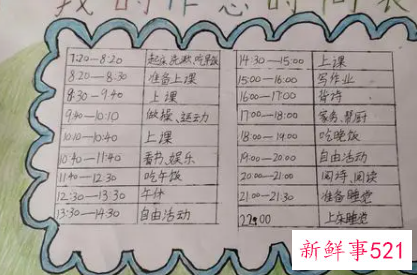 我的作息时间表
7:20—8:20 起床,洗漱,吃早饭
8:20—8:30 准备上课
8:30—9:40 上课
9:40—10:10 做操、运动
10:10—10:40 上课
10:40—11:40 看书、娱乐
11:40—12:30 吃午饭
12:30—13:30 午休
13:30—14:30 自由活动
14:30—15:00 上课
15:00—16:00 写作业
16:00—17:00 背诗
17:00—18:00 家务、帮厨
18:00—19:00 吃晚饭
19:00—20:00 自由活动
20:00—21:00 阅读
21:00—21:30 准备睡觉
22:00 上床睡觉
新鲜事521